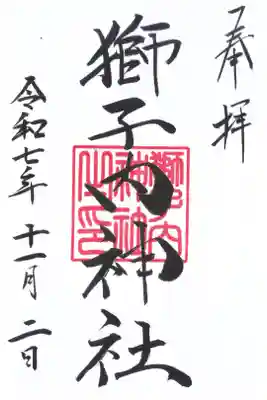 奉拝
獅子内神社
獅子内神社之印
令和七年 十一月 二日